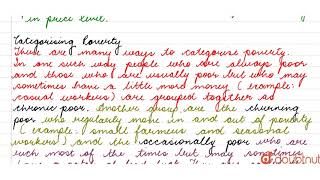 in price level.
Categorising Poverty
There are many ways to categorise poverty.
In one such way people who are always poor
and those who are usually poor but who may
sometimes have a little more money (example:
casual workers) are grouped together as
chronic poor. Another group are the churning
poor who regularly move in and out of poverty
(example: small farmers and seasonal
workers) and the occasionally poor who are
rich most of the times but may sometimes
doubtnut